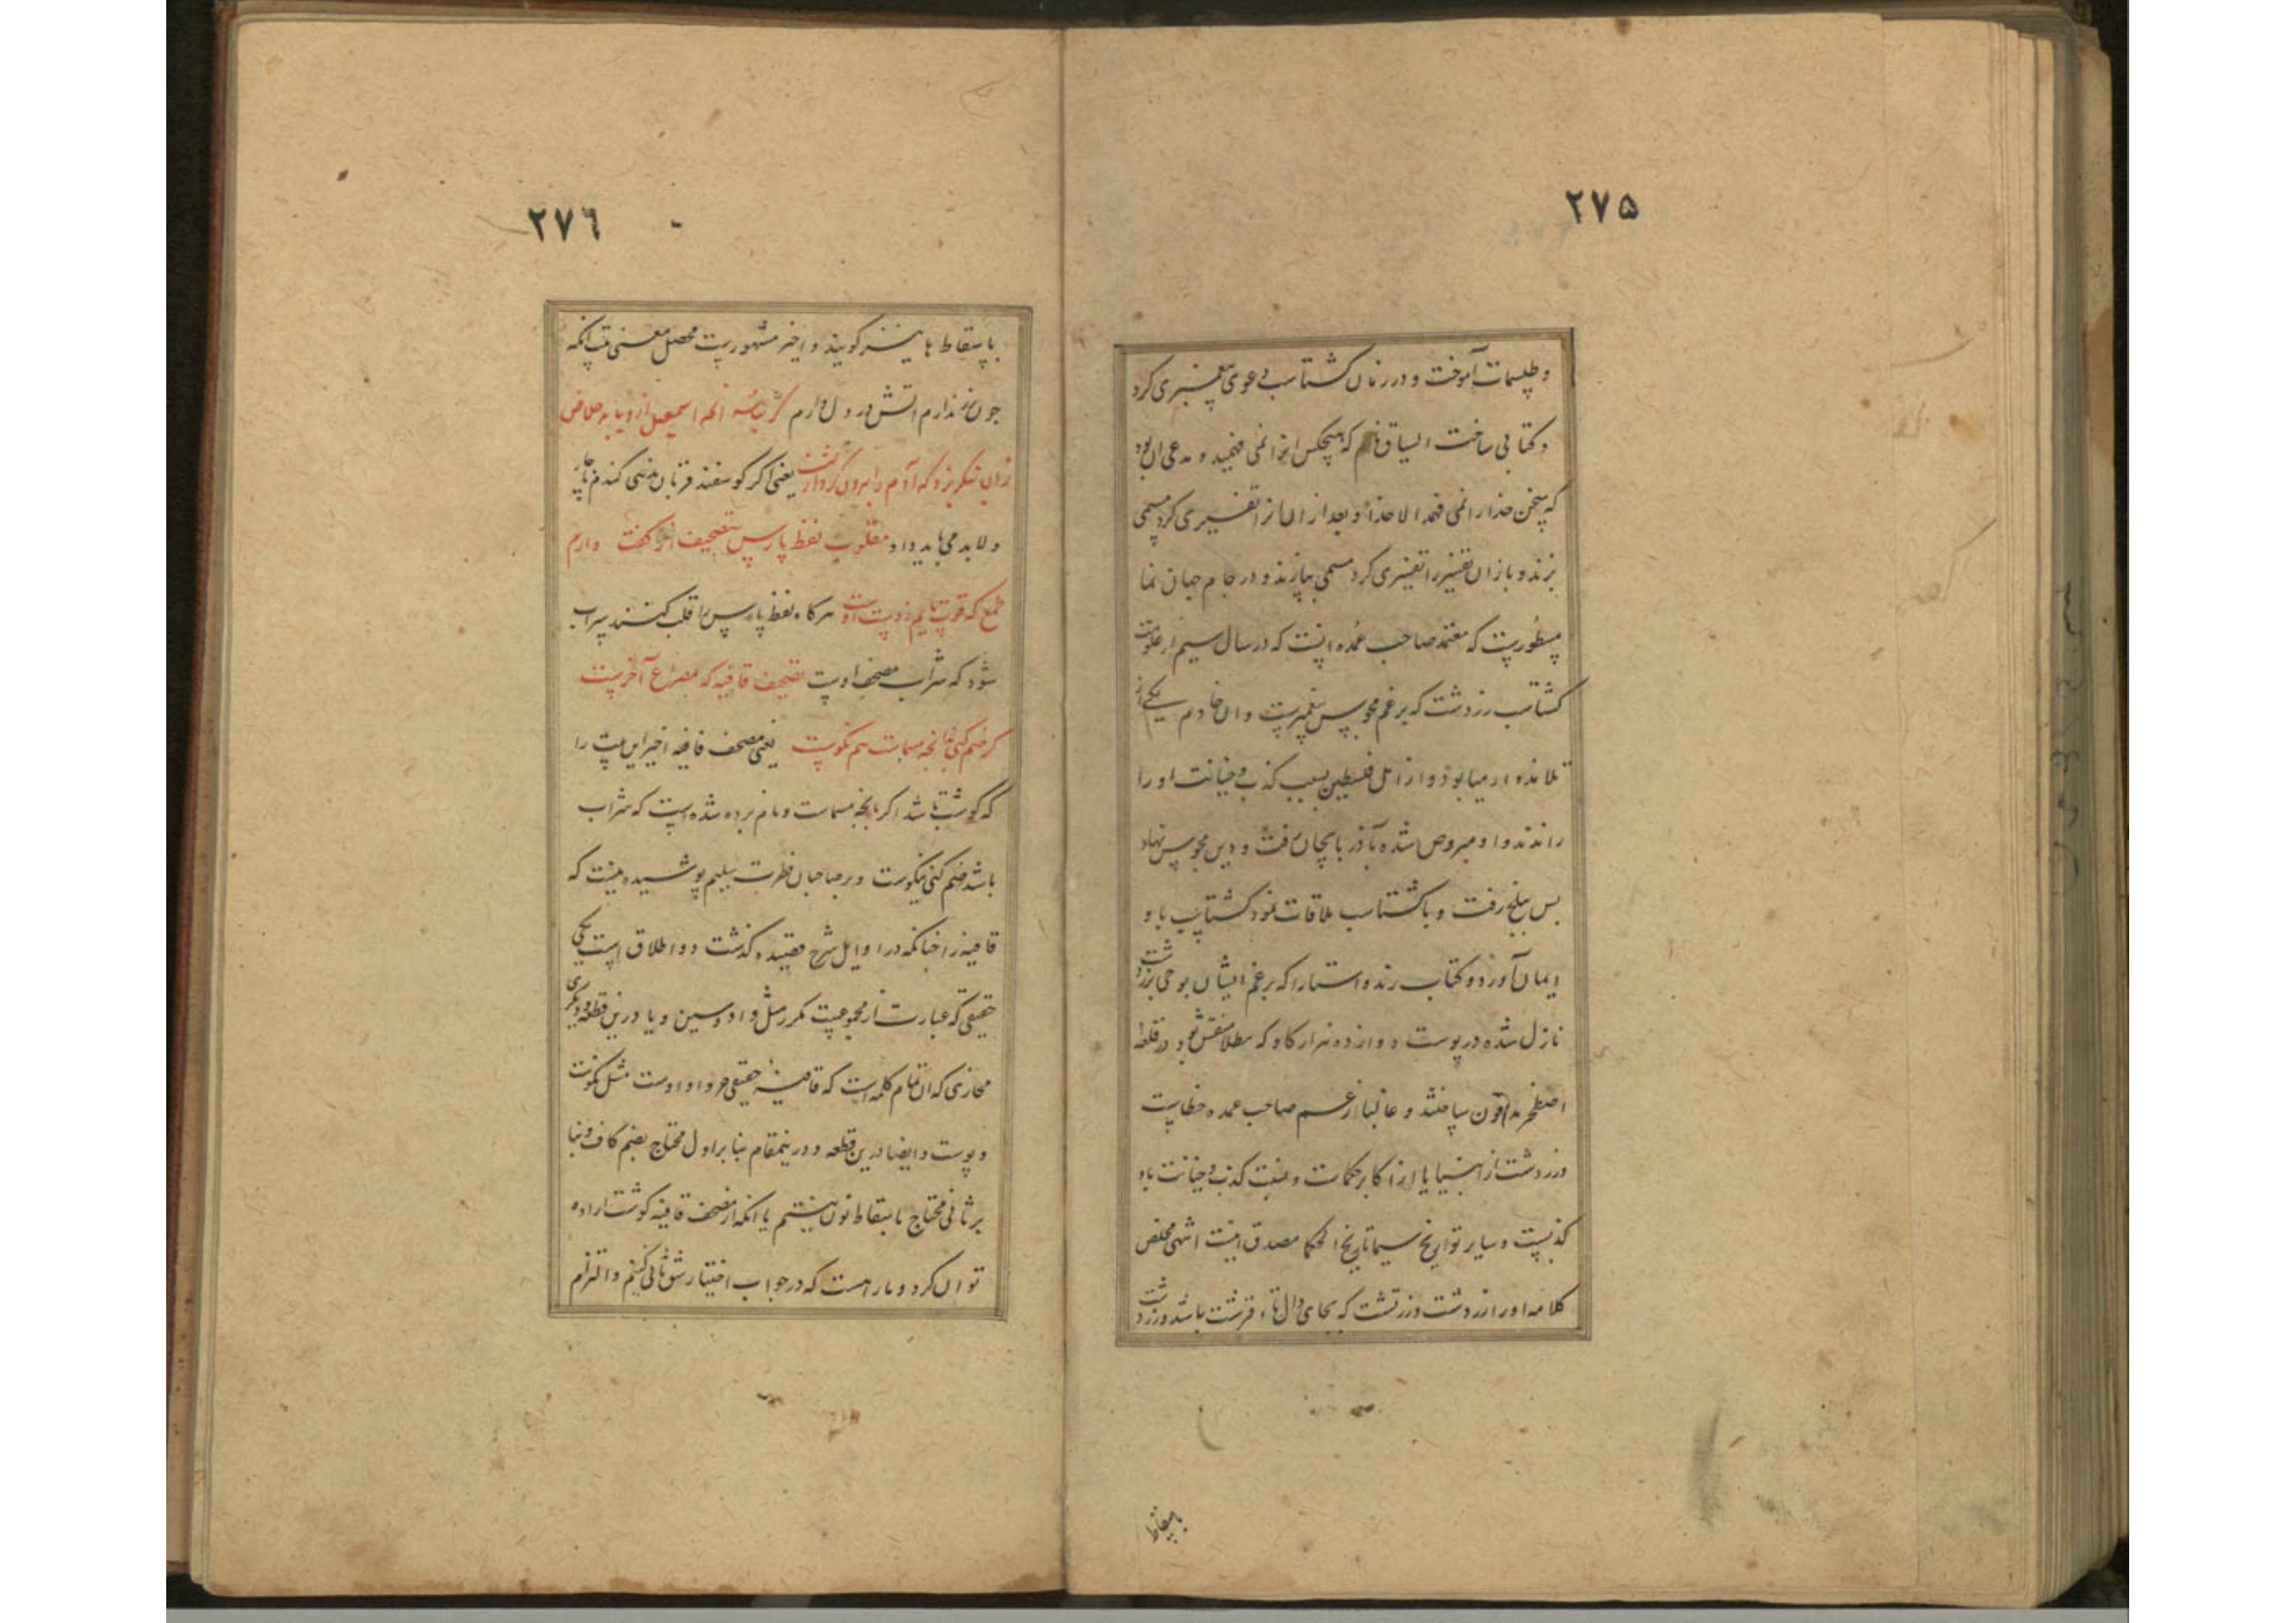 ۲۷۵
و طلسمات آموخت و در زمان كشتاسب دعوی پیغمبری كرد
و كتابی ساخت السیاق نام كه هیچكس انرا نمی فهمید و مدعی ان بود
كه سخن خدا را نمی فهمد الا خدا و بعد از ان انرا تفسیری كرد مسمی
بزند و باز ان تفسیر را تفسیری كرد مسمی بپازند و در جام جهان نما
مسطورست كه معتمد صاحب عمده انست كه در سال سیم از
كشتاسب زردشت كه بزعم مجوس پیغمبرست و ان خادم یكی از
تلامذه ارمیا بود و از اهل فلسطین بسبب كذب و خیانت او را
راندند و او مبروص شده بآذربایجان رفت و دین مجوس نهاد
بس ببلخ رفت و با كشتاسب ملاقات نمود كشتاسب باو
ایمان آورد و كتاب زند و استا را كه بزعم ایشان بوحی بزردشت
نازل شده در پوست دوازده هزار كاو كه بطلا منقش بود در قلعه
اصطخر مدفون ساختند و غالبا زعم صاحب عمده خطاست
و زردشت از انبیا یا از اكابر حكمات و نسبت كذب و خیانت باو
كذبست و سایر تواریخ سیما تاریخ الحكما مصدق اینست انتهی مخلص
كلامه او را زردشت و زرتشت كه بجای دال تاء قرشت باشد و زرد
باسقاط
۲۷٦
باسقاط ها نیز كویند و اخیر مشهورست محصل معنی بیت انكه
چون ندارم اتش در دل دارم
یعنی اكر كوسفند قربان نمی كندم ناچار
و لابد می باید داد مقلوب لفظ پارس بتصحیف از كفت دارم
طمع كه قوت اوست هركاه لفظ پارس را قلب كنند سراب
شود كه شراب مصحف اوست تصحیف قافیه كه بمصرع آخرست
كر ضم كنی بدانچه مسمات هم نكوست یعنی مصحف قافیه اخیر این بیت را
كه كوشت باشد اكر بانچه مسماست و نام برده شده است كه شراب
باشد ضم كنی نیكوست و بر صاحبان فطرت سلیم پوشیده نیست كه
قافیه را چنانكه در اوایل شرح قصیده كذشت دو اطلاق است یكی
حقیقی كه عبارت از مجموعیست مكرر مثل واو و سین و یا درین قطعه و دیكری
مجازی كه ان تمام كلمه است كه قافیه حقیقی جزو اوست مثل نكوست
و پوست و ایضا درین قطعه و درینمقام بنا بر اول محتاج بضم كاف و بنا
بر ثانی محتاج باسقاط نون نیستیم یا انكه از مصحف قافیه كوشت اراده
توان كرد و مار است كه در جواب اختیار شق ثانی كنیم و التزام